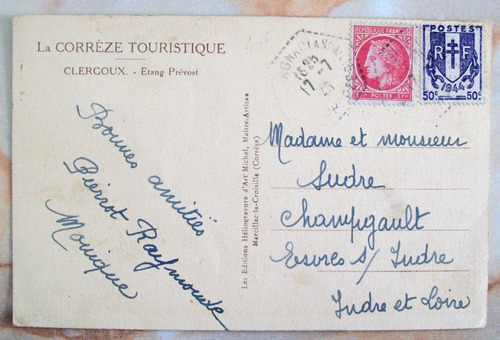 La CORRÈZE TOURISTIQUE
CLERGOUX. - Etang Prévost
Bonnes amitiés
Pierrot Raymonde
Monique
Les Editions Héliogravure d'Art Michel, Maître-Artisan
Marcillac-la-Croisille (Corrèze)
16 25
17 - 7
REPUBLIQUE FRANÇAISE
POSTES
POSTES
R F
1944
50c 50c
Madame et monsieur
Sudre
Champigault
Esvres s/ Indre
Indre et Loire